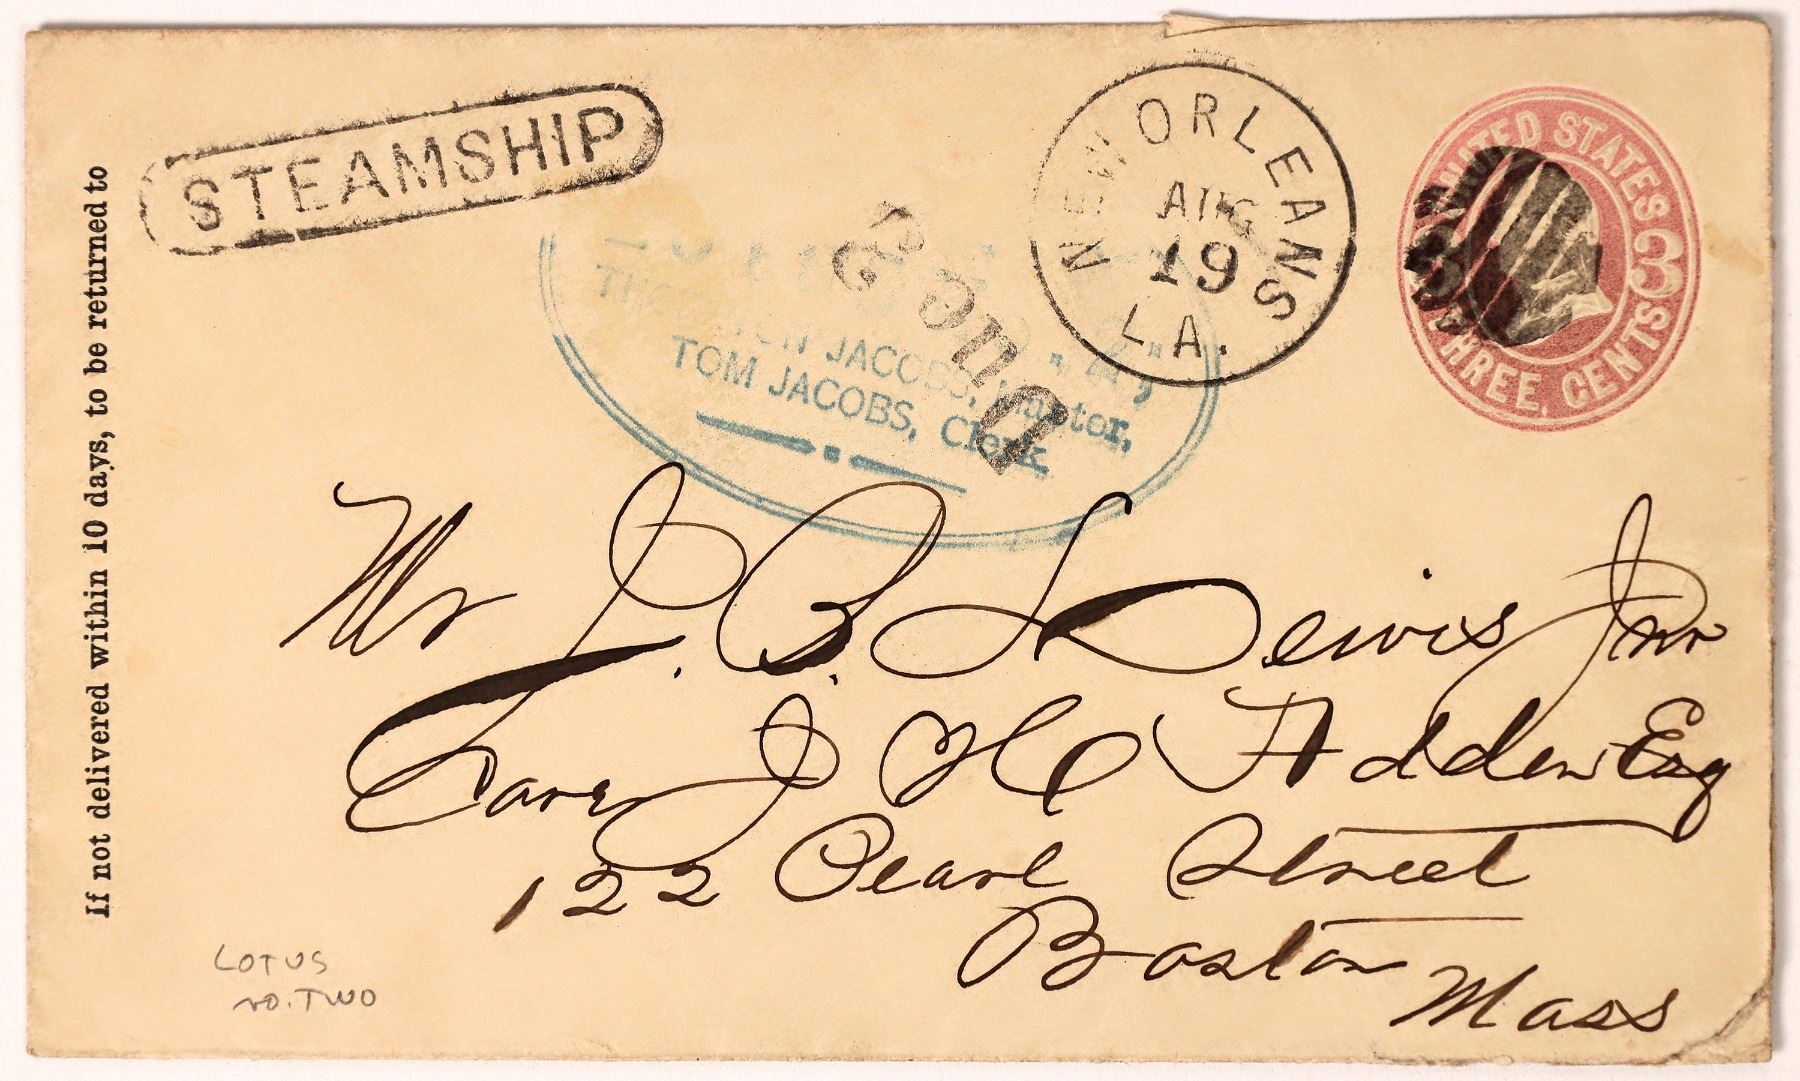 If not delivered within 10 days, to be returned to
STEAMSHIP
NEW ORLEANS
AUG
19
LA.
UNITED STATES
3 3
THREE CENTS
Due 3
JACOBS, Master,
TOM JACOBS, Clerk.
Mr J. B. Lewis Jnr
Care J H Adden Esq
122 Pearl Street
Boston
Mass
LOTUS
NO. TWO